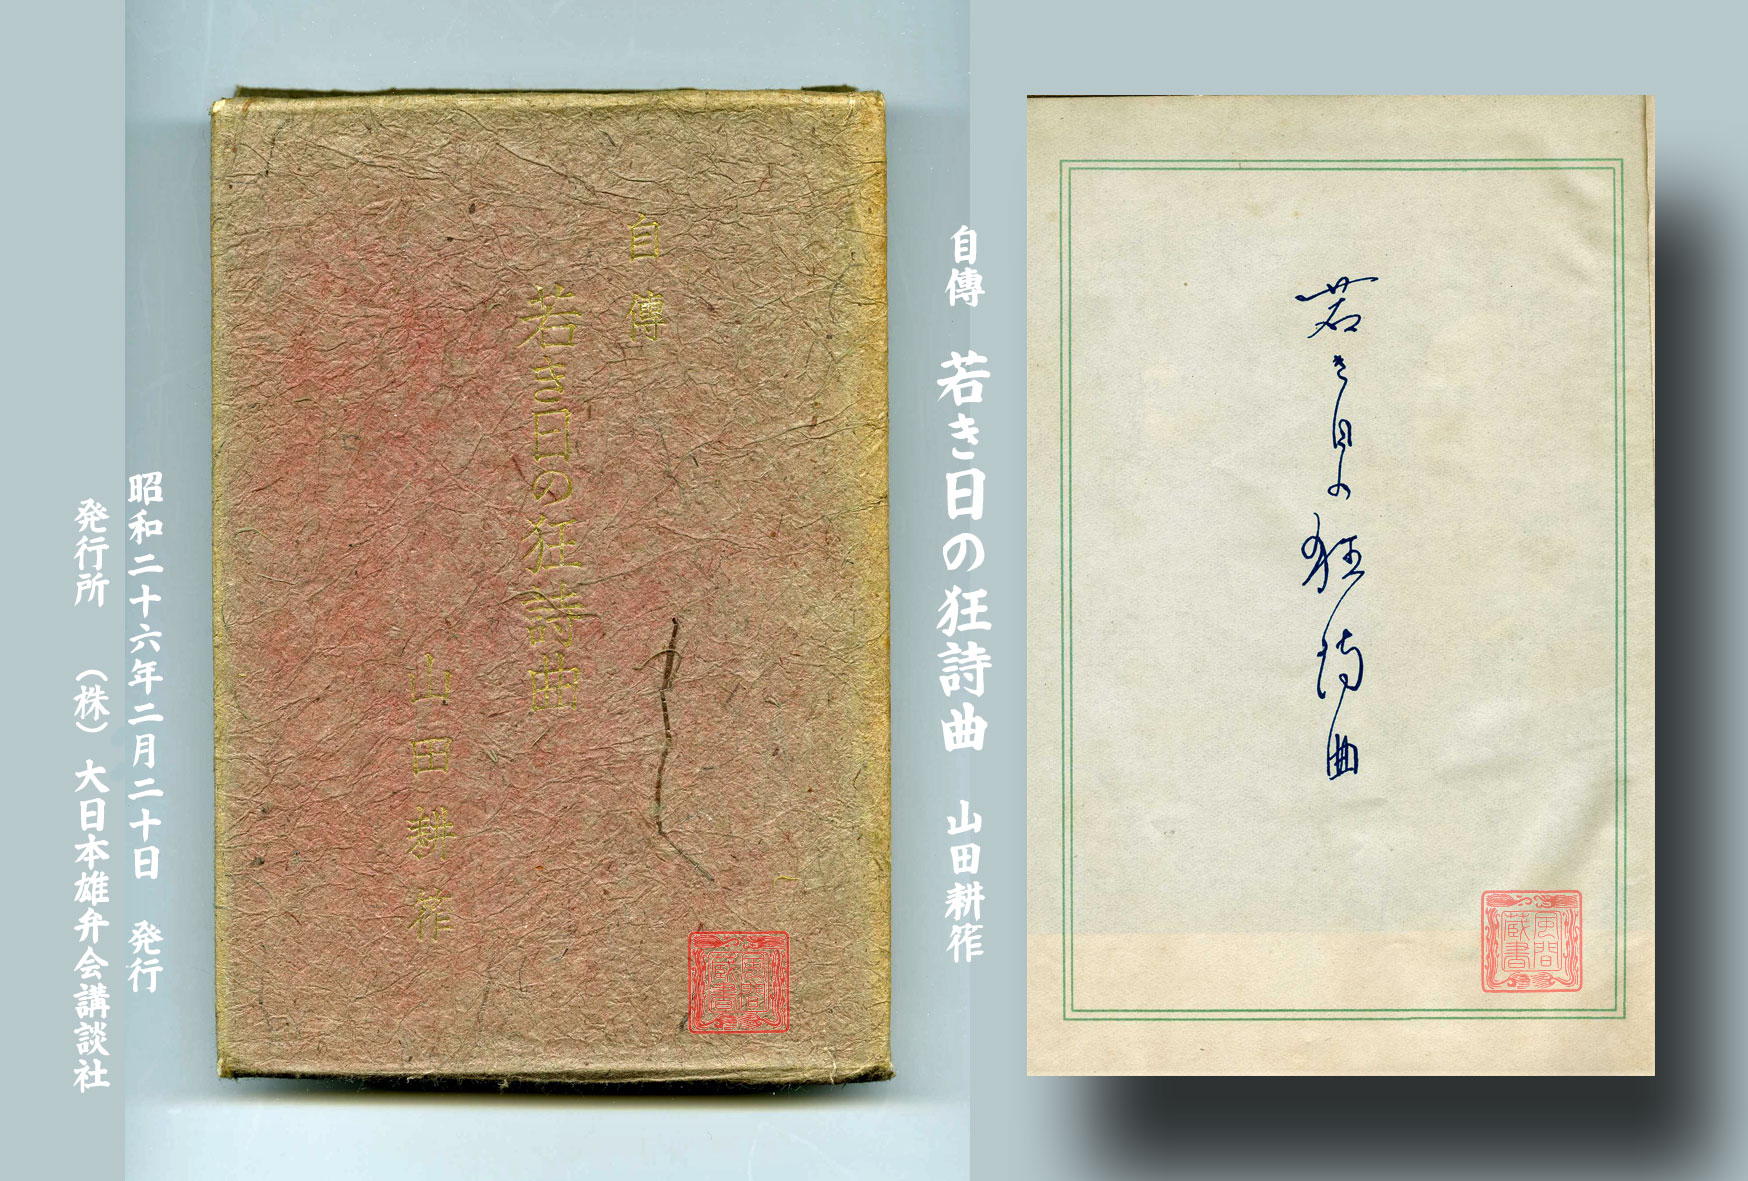 自傳
若き日の狂詩曲
山田耕筰
自傳　若き日の狂詩曲　山田耕筰
昭和二十六年二月二十日　発行
発行所　（株）大日本雄弁会講談社
若き日の狂詩曲
風間
蔵書
風間
蔵書